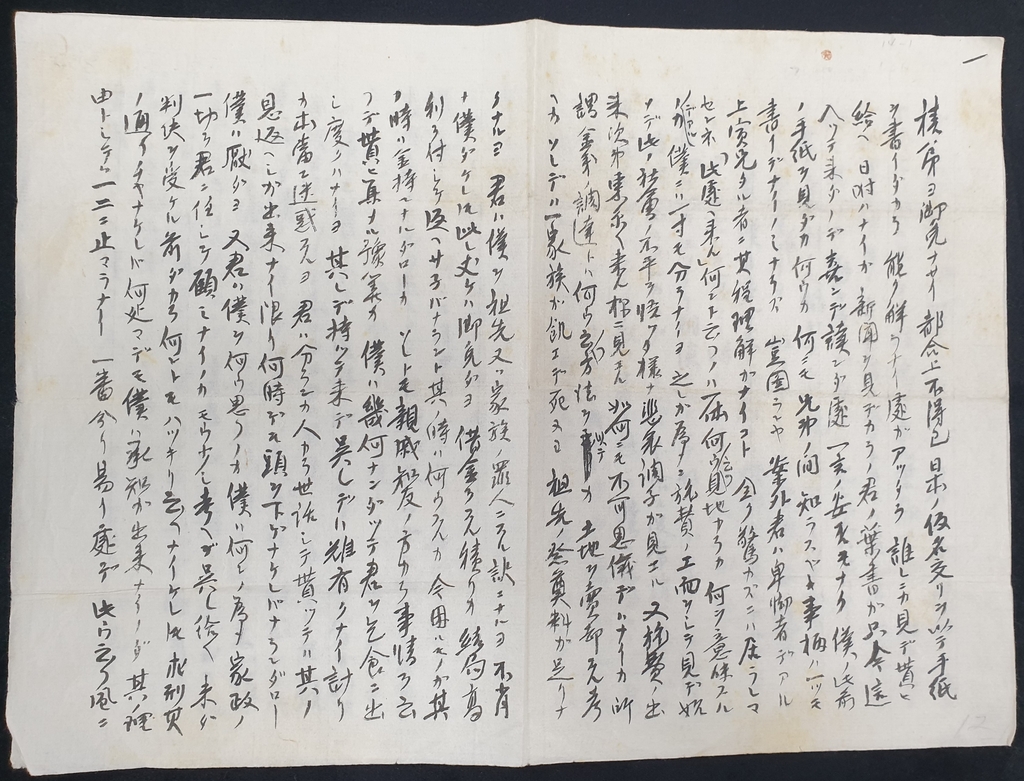 一
植弟ヨ御免ナサイ都合上不得已日本ノ仮名交リヲ以テ手紙
ヲ書イダカラ能ク解ラナイ處ガアツタラ誰レニカ見デ貰ヒ
給ヘ 日附ハナイガ新聞ヲ見デカラノ君ノ葉書ガ只今這
入ツテ来タノデ喜ンデ讀ンダ處一笑ノ モナク僕ノ此前
ノ手紙ヲ見ダカ何ウカ何ニモ兄弟ノ間知ラスベキ事柄ハ一ツモ
書イデナイノミナラズ豈図ランヤ案外君ハ卑怯者デアル
上實兄タル者ニ其程理解ガナイコト全ク驚カズニハ居ラレマ
センネ「此處ヘ来ん」何ント云フノハ一体何ウ云フ見地カラカ何ヲ意味スル
ノカ僕ニハ一寸モ分ラナイヨ之しガ為メ旅費ノ工面ヲシテ見デ
ナデ此ノ社會ノ不平ヲ 様ナ悲哀調子ガ見エル又旅費ノ出
来次第東京ヘ来ん様ニ見エん如何ニモ不可思儀デハナイカ所
謂金策調達トハ何ウ云フ方法ヲ カ土地ヲ賣却スル考
ヘカ ソレデハ一家族ガ飢エデ死ヌヨ祖先ノ祭奠料ガ足リナ
クナルヨ 君ハ僕ヲ祖先又ハ家族ノ罪人ニスル訳ニナルヨ不肖
ナ僕ダケレ此レ丈ケハ御免ダヨ 借金スル積リカ結局高
利ヲ付シテ返ヘサネバナラント其ノ時ハ何ウスルカ今困ルモノガ其
ノ時ハ金持ニナルダローカ ソレトモ親戚知友ノ方カラ事情ヲ云
フデ貰ヒ 真ナル豫 カ僕ハ幾何ナンダツテ君ヲ乞食ニ出
シ度クハナイヨ 其しデ持ツテ来デ呉しデハ難有クナイ計リ
カ本當ニ迷惑スルヨ 君ハ分ランカ人カラ世話シテ貰ツテハ其ノ
見返ヘシガ出来ナイ限リ何時デモ頭ヲ下ゲナケレバナランダロー
僕ハ厭ダヨ 又君ハ僕ヲ何ウ思フノカ僕ハ何ンノ為メ家政ノ
一切ヲ君ニ任シテ顧ミナイノカモウ少シ考ヘデ呉し給ヘ 未ダ
判決ヲ受ケル前ダカラ何ントモハツキリ云ヘナイケレ共 求刑 
ノ通イチャナケレバ何処マデモ僕ハ承知ガ出来ナイノダ其ノ理
由トシテハ一二ニ止マラナイ 一番分リ易イ處デ 此ウ云フ風ニ
12